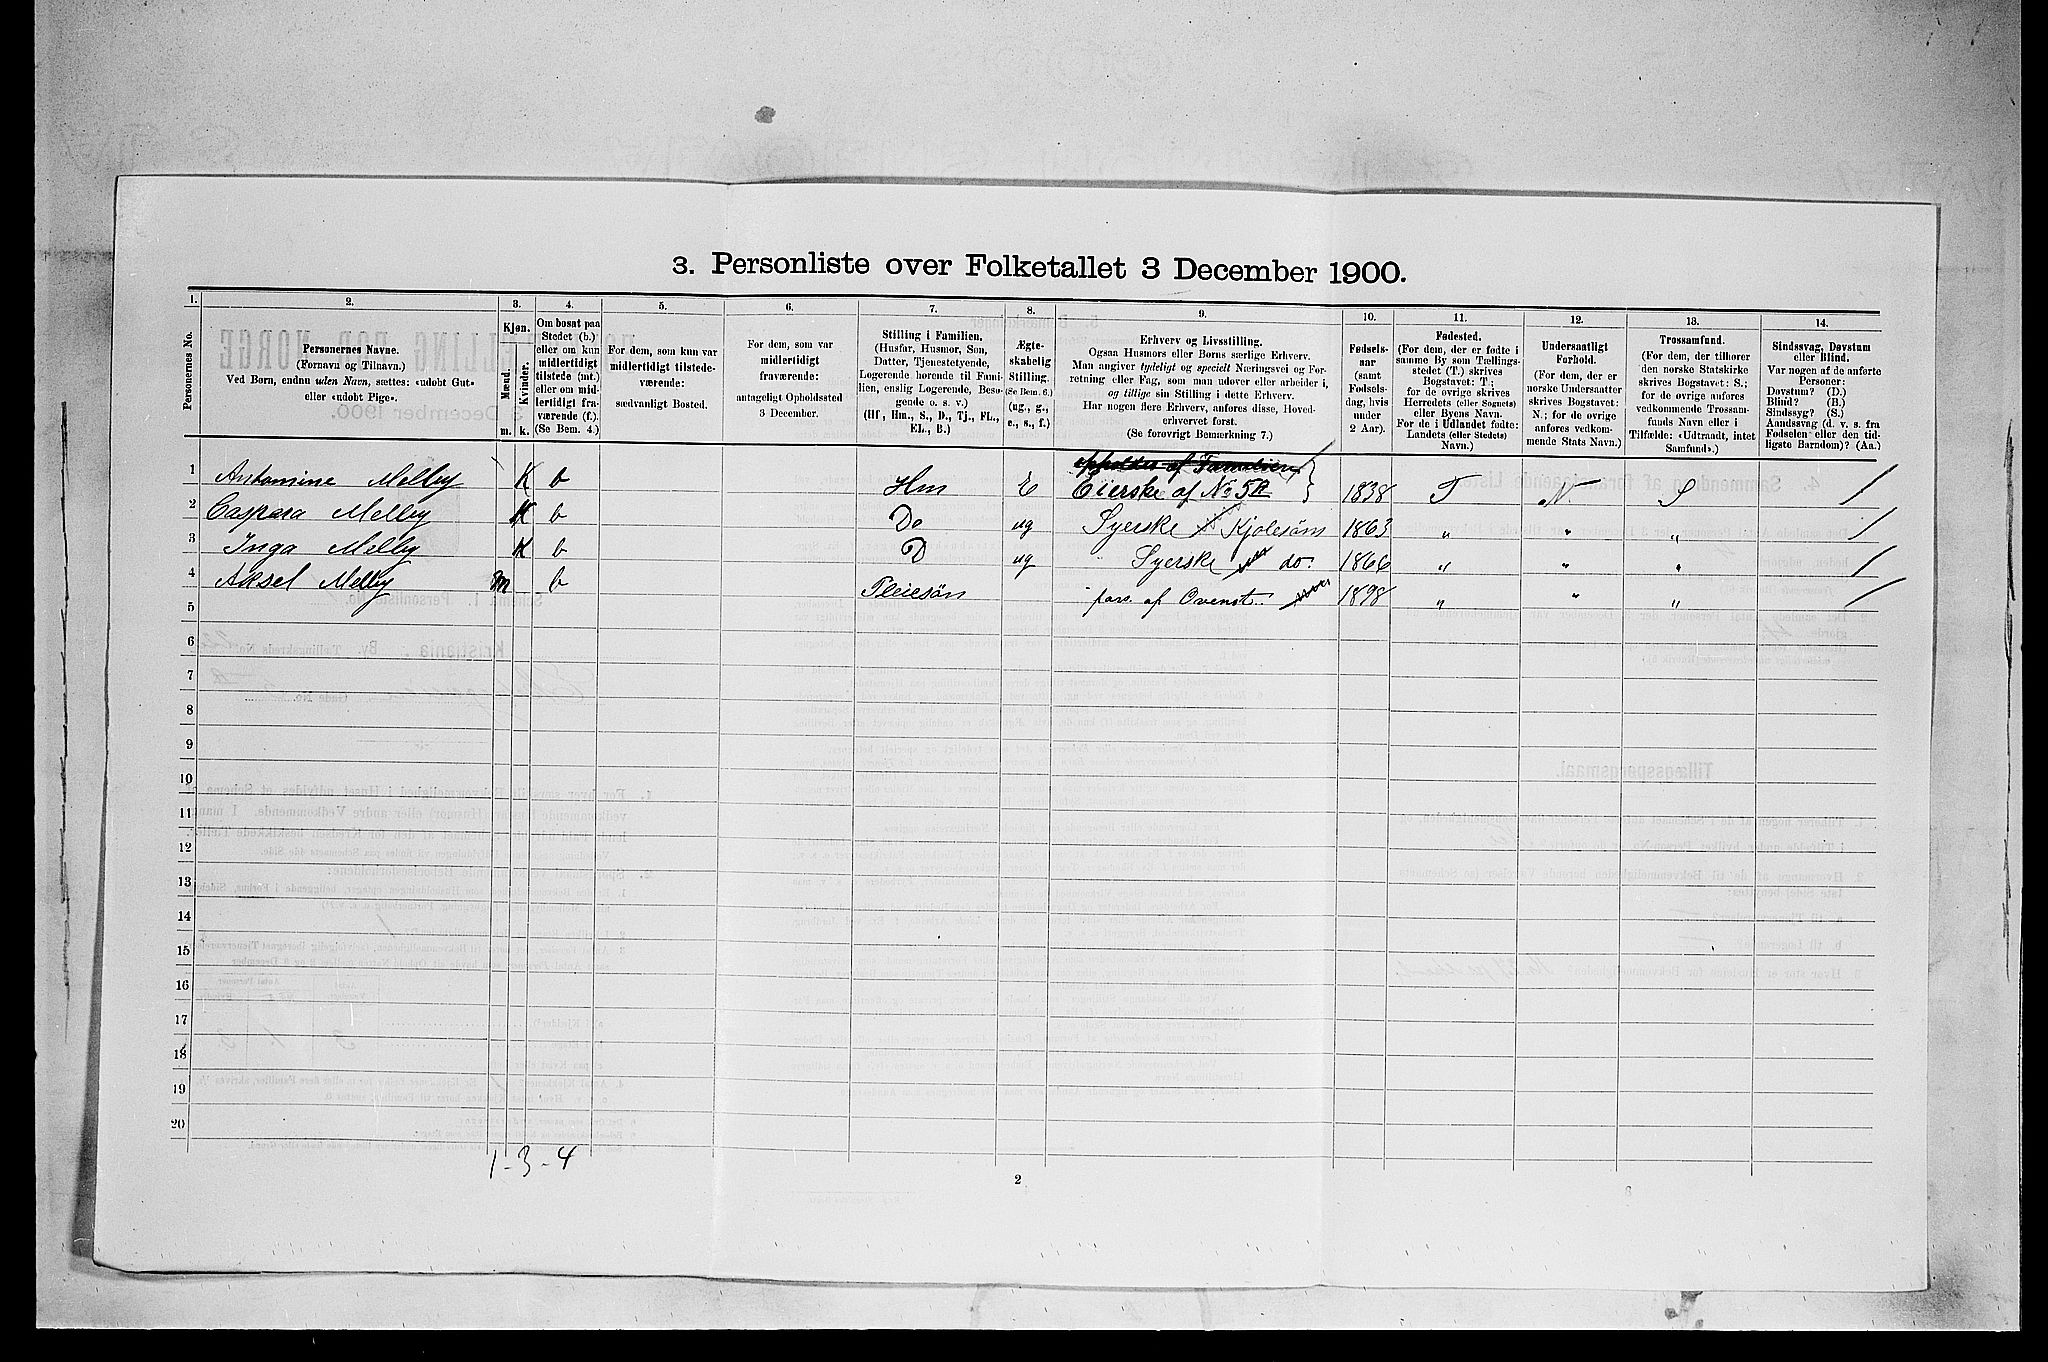 3. Personliste over Folketallet 3 December 1900.
1. 2. 3. 4. 5. 6. 7. 8. 9. 10. 11. 12. 13. 14.
Personernes No.
Personernes Navne.
(Fornavn og Tilnavn.)
Ved Børn, endnu uden Navn, sættes: «udøbt Gut»
eller «udøbt Pige».
Kjøn.
Mænd.
Kvinder.
m. k.
Om bosat paa
Stedet (b.)
eller om kun
midlertidigt
tilstede (mt.)
eller om mid-
lertidigt fra-
værende (f.).
(Se Bem. 4.)
For dem, som kun var
midlertidigt tilstede-
værende:
sædvanligt Bosted.
For dem, som var
midlertidigt
fraværende:
antageligt Opholdssted
3 December.
Stilling i Familien.
(Husfar, Husmor, Søn,
Datter, Tjenestetyende,
Logerende hørende til Fami-
lien, enslig Logerende, Besø-
gende o. s. v.)
(Hf., Hm., S., D., Tj., FL.,
EL., B.)
Ægte-
skabelig
Stilling.
(Se Bem. 6.)
(ug., g.,
e., s., f.)
Erhverv og Livsstilling.
Ogsaa Husmors eller Børns særlige Erhverv.
Man angiver tydeligt og specielt Næringsvei og For-
retning eller Fag, som man udøver eller arbeider i,
og tillige sin Stilling i dette Erhverv.
Har nogen flere Erhverv, anføres disse, Hoved-
erhvervet først.
(Se forøvrigt Bemærkning 7.)
Fødsels-
aar
(samt
Fødsels-
dag, hvis
under
2 Aar).
Fødested.
(For dem, der er fødte i
samme By som Tællings-
stedet (T.) skrives
Bogstavet: T.;
for de øvrige skrives
Herredets (eller Sognets)
eller Byens Navn.
For de i Udlandet fødte:
Landets (eller Stedets)
Navn.)
Undersaatligt
Forhold.
(For dem, der er
norske Undersaatter
skrives Bogstavet:
N.; for de øvrige
anføres vedkom-
mende Stats Navn.)
Trossamfund.
(For dem, der tilhører
den norske Statskirke
skrives Bogstavet: S.;
for de øvrige anføres
vedkommende Trossam-
funds Navn eller i
Tilfælde: «Udtraadt, intet
Samfund».)
Sindssvag, Døvstum
eller Blind.
Var nogen af de anførte
Personer:
Døvstum? (D.)
Blind? (B.)
Sindssyg? (S.)
Aandssvag (d. v. s. fra
Fødselen eller den tid-
ligste Barndom)? (Aa.)
opholdes af Familien
1 Antomine Melby K b Hm E Eierske af No 5A 1838 T N S /
2 Caspara Melby K b Do ug Syerske Kjolesøm 1863 " " " /
3 Inga Melby K b D ug Syerske do. 1866 " " " /
4 Aksel Melby m b Pleiesøn fors. af Ovenst. 1898 " " " /
5
6
7
8
9
10
11
12
13
14
15
16
17
18
19
20
1-3-4
2